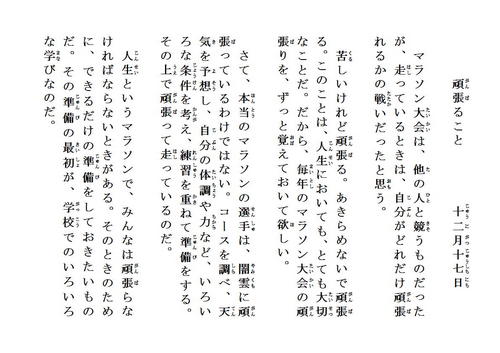 頑張ること　十二月十七日
マラソン大会は、他の人と競うものだった
が、走っているときは、自分がどれだけ頑張
れるかの戦いだったと思う。
苦しいけれど頑張る。あきらめないで頑張
る。このことは、人生においても、とても大切
なことだ。だから、毎年のマラソン大会の頑
張りを、ずっと覚えておいて欲しい。
さて、本当のマラソンの選手は、闇雲に頑
張っているわけではない。コースを調べ、天
気を予想し、自分の体調や力など、いろい
ろな条件を考え、練習を重ねて準備をする。
その上で頑張って走っているのだ。
人生というマラソンで、みんなは頑張らな
ければならないときがある。そのときのため
に、できるだけの準備をしておきたいもの
だ。その準備の最初が、学校でのいろいろ
な学びなのだ。